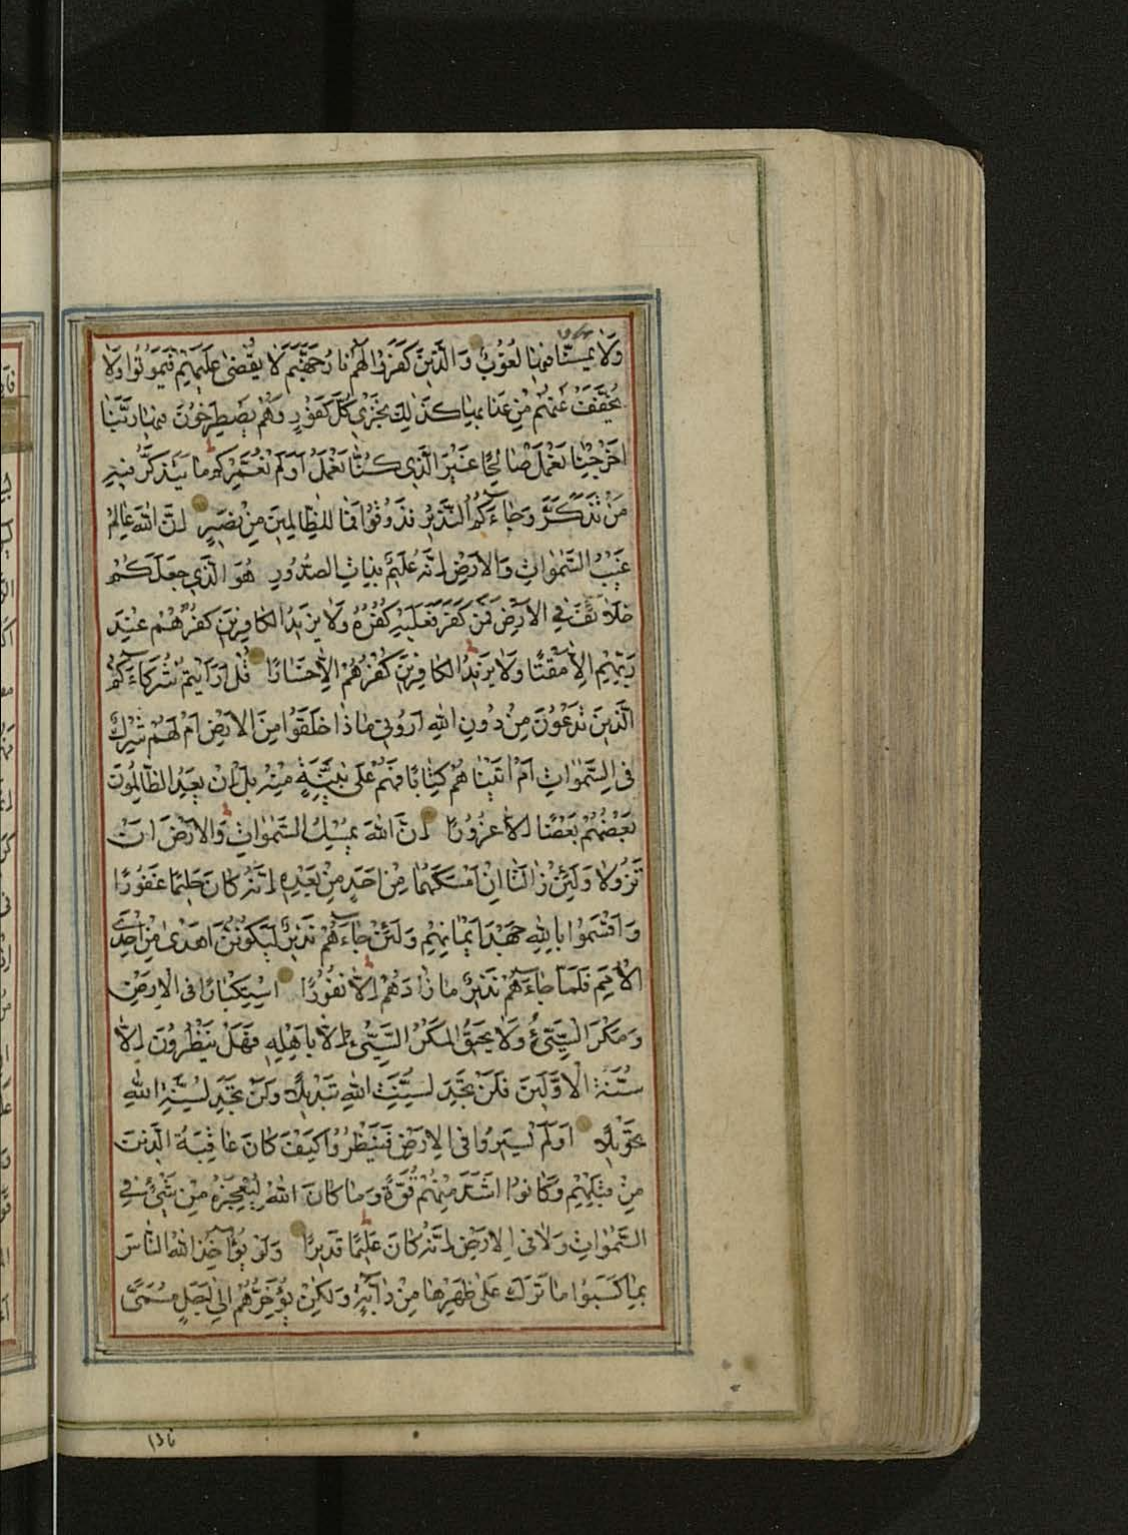 وَلَا يَمَسُّنَا فِيهَا لُغُوبٌ وَالَّذِينَ كَفَرُوا لَهُمْ نَارُ جَهَنَّمَ لَا يُقْضَىٰ عَلَيْهِمْ فَيَمُوتُوا وَلَا
يُخَفَّفُ عَنْهُمْ مِنْ عَذَابِهَا كَذَٰلِكَ نَجْزِي كُلَّ كَفُورٍ وَهُمْ يَصْطَرِخُونَ فِيهَا رَبَّنَا
اَخْرِجْنَا نَعْمَلْ صَالِحًا غَيْرَ الَّذِي كُنَّا نَعْمَلُ اَوَلَمْ نُعَمِّرْكُمْ مَا يَتَذَكَّرُ فِيهِ
مَنْ تَذَكَّرَ وَجَاءَكُمُ النَّذِيرُ فَذُوقُوا فَمَا لِلظَّالِمِينَ مِنْ نَصِيرٍ اِنَّ اللّٰهَ عَالِمُ
غَيْبِ السَّمٰوَاتِ وَالْاَرْضِ اِنَّهُ عَلِيمٌ بِذَاتِ الصُّدُورِ هُوَ الَّذِي جَعَلَكُمْ
خَلَائِفَ فِي الْاَرْضِ فَمَنْ كَفَرَ فَعَلَيْهِ كُفْرُهُ وَلَا يَزِيدُ الْكَافِرِينَ كُفْرُهُمْ عِنْدَ
رَبِّهِمْ اِلَّا مَقْتًا وَلَا يَزِيدُ الْكَافِرِينَ كُفْرُهُمْ اِلَّا خَسَارًا قُلْ اَرَاَيْتُمْ شُرَكَاءَكُمُ
الَّذِينَ تَدْعُونَ مِنْ دُونِ اللّٰهِ اَرُونِي مَاذَا خَلَقُوا مِنَ الْاَرْضِ اَمْ لَهُمْ شِرْكٌ
فِي السَّمٰوَاتِ اَمْ اٰتَيْنَاهُمْ كِتَابًا فَهُمْ عَلَىٰ بَيِّنَةٍ مِنْهُ بَلْ اِنْ يَعِدُ الظَّالِمُونَ
بَعْضُهُمْ بَعْضًا اِلَّا غُرُورًا اِنَّ اللّٰهَ يُمْسِكُ السَّمٰوَاتِ وَالْاَرْضَ اَنْ
تَزُولَا وَلَئِنْ زَالَتَا اِنْ اَمْسَكَهُمَا مِنْ اَحَدٍ مِنْ بَعْدِهِ اِنَّهُ كَانَ حَلِيمًا غَفُورًا
وَاَقْسَمُوا بِاللّٰهِ جَهْدَ اَيْمَانِهِمْ وَلَئِنْ جَاءَهُمْ نَذِيرٌ لَيَكُونُنَّ اَهْدَىٰ مِنْ اِحْدَى
الْاُمَمِ فَلَمَّا جَاءَهُمْ نَذِيرٌ مَا زَادَهُمْ اِلَّا نُفُورًا اسْتِكْبَارًا فِي الْاَرْضِ
وَمَكْرَ السَّيِّئِ وَلَا يَحِيقُ الْمَكْرُ السَّيِّئُ اِلَّا بِاَهْلِهِ فَهَلْ يَنْظُرُونَ اِلَّا
سُنَّةَ الْاَوَّلِينَ فَلَنْ تَجِدَ لِسُنَّتِ اللّٰهِ تَبْدِيلًا وَلَنْ تَجِدَ لِسُنَّةِ اللّٰهِ
تَحْوِيلًا اَوَلَمْ يَسِيرُوا فِي الْاَرْضِ فَيَنْظُرُوا كَيْفَ كَانَ عَاقِبَةُ الَّذِينَ
مِنْ قَبْلِهِمْ وَكَانُوا اَشَدَّ مِنْهُمْ قُوَّةً وَمَا كَانَ اللّٰهُ لِيُعْجِزَهُ مِنْ شَيْءٍ فِي
السَّمٰوَاتِ وَلَا فِي الْاَرْضِ اِنَّهُ كَانَ عَلِيمًا قَدِيرًا وَلَوْ يُؤَاخِذُ اللّٰهُ النَّاسَ
بِمَا كَسَبُوا مَا تَرَكَ عَلَىٰ ظَهْرِهَا مِنْ دَابَّةٍ وَلَٰكِنْ يُؤَخِّرُهُمْ اِلَىٰ اَجَلٍ مُسَمًّى